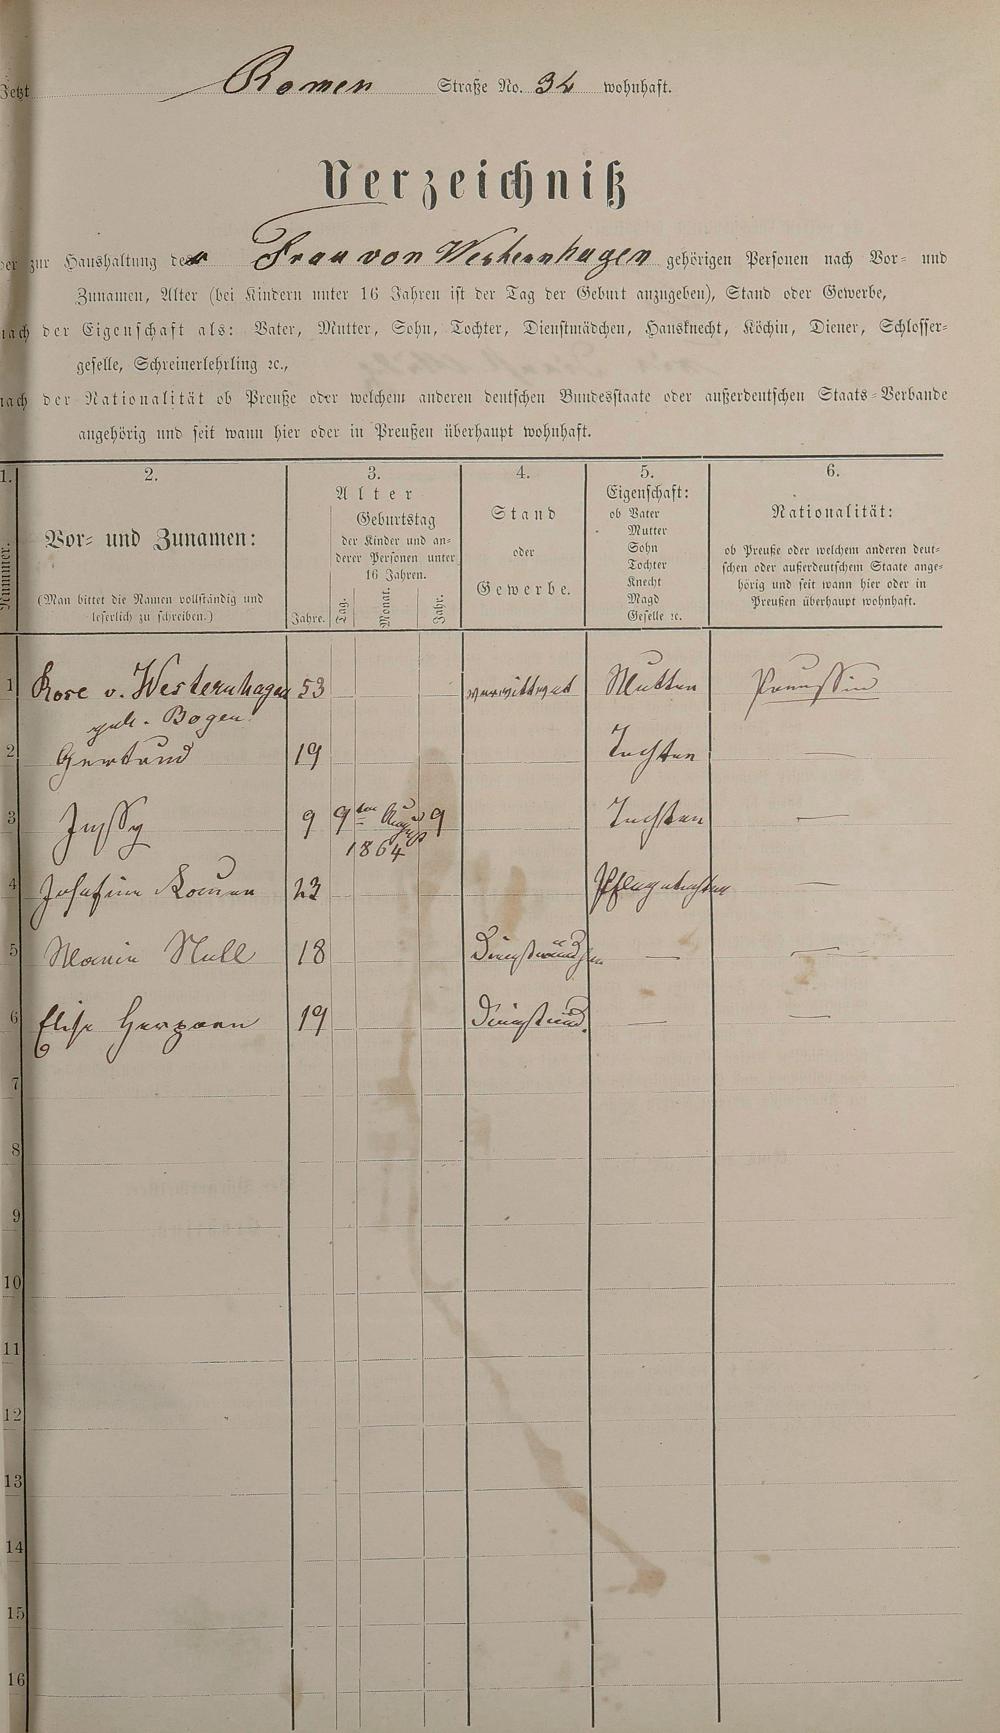 Jetzt Romen Straße No. 34 wohnhaft.
Verzeichniß
der zur Haushaltung der Frau von Westernhagen gehörigen Personen nach Vor- und
Zunamen, Alter (bei Kindern unter 16 Jahren ist der Tag der Geburt anzugeben), Stand oder Gewerbe,
nach der Eigenschaft als: Vater, Mutter, Sohn, Tochter, Dienstmädchen, Hausknecht, Köchin, Diener, Schlosser-
geselle, Schreinerlehrling ꝛc.,
nach der Nationalität ob Preuße oder welchem anderen deutschen Bundesstaate oder außerdeutschen Staats-Verbande
angehörig und seit wann hier oder in Preußen überhaupt wohnhaft.
1.
Nummer.
2.
Vor- und Zunamen:
(Man bittet die Namen vollständig und
leserlich zu schreiben.)
3.
Alter
Geburtstag
der Kinder und an-
derer Personen unter
16 Jahren.
Jahre. Tag. Monat. Jahr.
4.
Stand
oder
Gewerbe.
5.
Eigenschaft:
ob Vater
Mutter
Sohn
Tochter
Knecht
Magd
Geselle ꝛc.
6.
Nationalität:
ob Preuße oder welchem anderen deut-
schen oder außerdeutschem Staate ange-
hörig und seit wann hier oder in
Preußen überhaupt wohnhaft.
1 Rose v. Westernhagen 53 verwittwet Mutter Preussin
geb. Bogen
2 Gertrud 19 Tochter —
3 9 9ten August 9 Tochter —
1864
4 Josefine 23 Pflegetochter —
5 Maria Null 18 Dienstmädchen — —
6 Elise 19 Dienstmd. — —
7
8
9
10
11
12
13
14
15
16